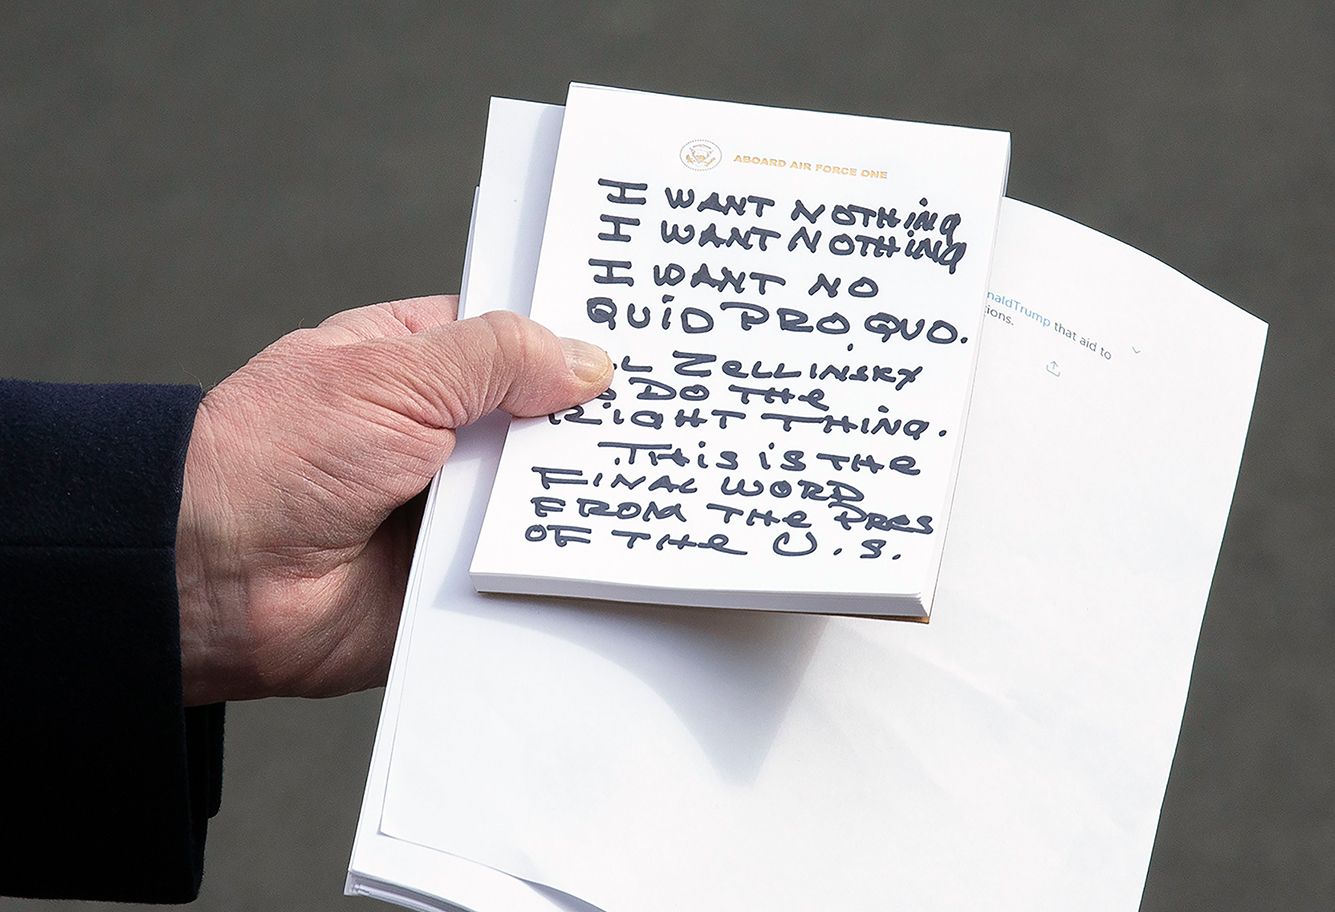 ABOARD AIR FORCE ONE
I WANT NOTHING
I WANT NOTHING
I WANT NO
QUID PRO QUO.
L ZELLINSKY
DO THE
RIGHT THING.
THIS IS THE
FINAL WORD
FROM THE PRES
OF THE U.S.
naldTrump that aid to
ions.